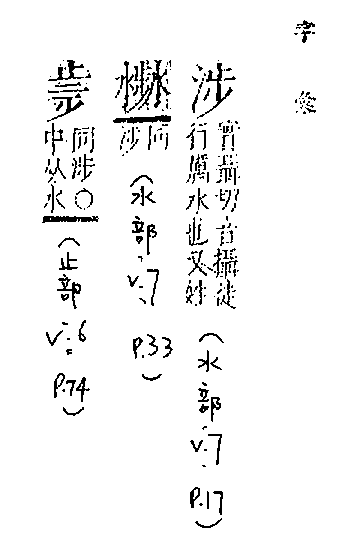 字彙
涉
實攝切音攝徒
行厲水也又姓
(水部 V.7 P.17)
同
涉
(水部 V.7 P.33)
同涉○
中从水
(止部 V.6 P.74)